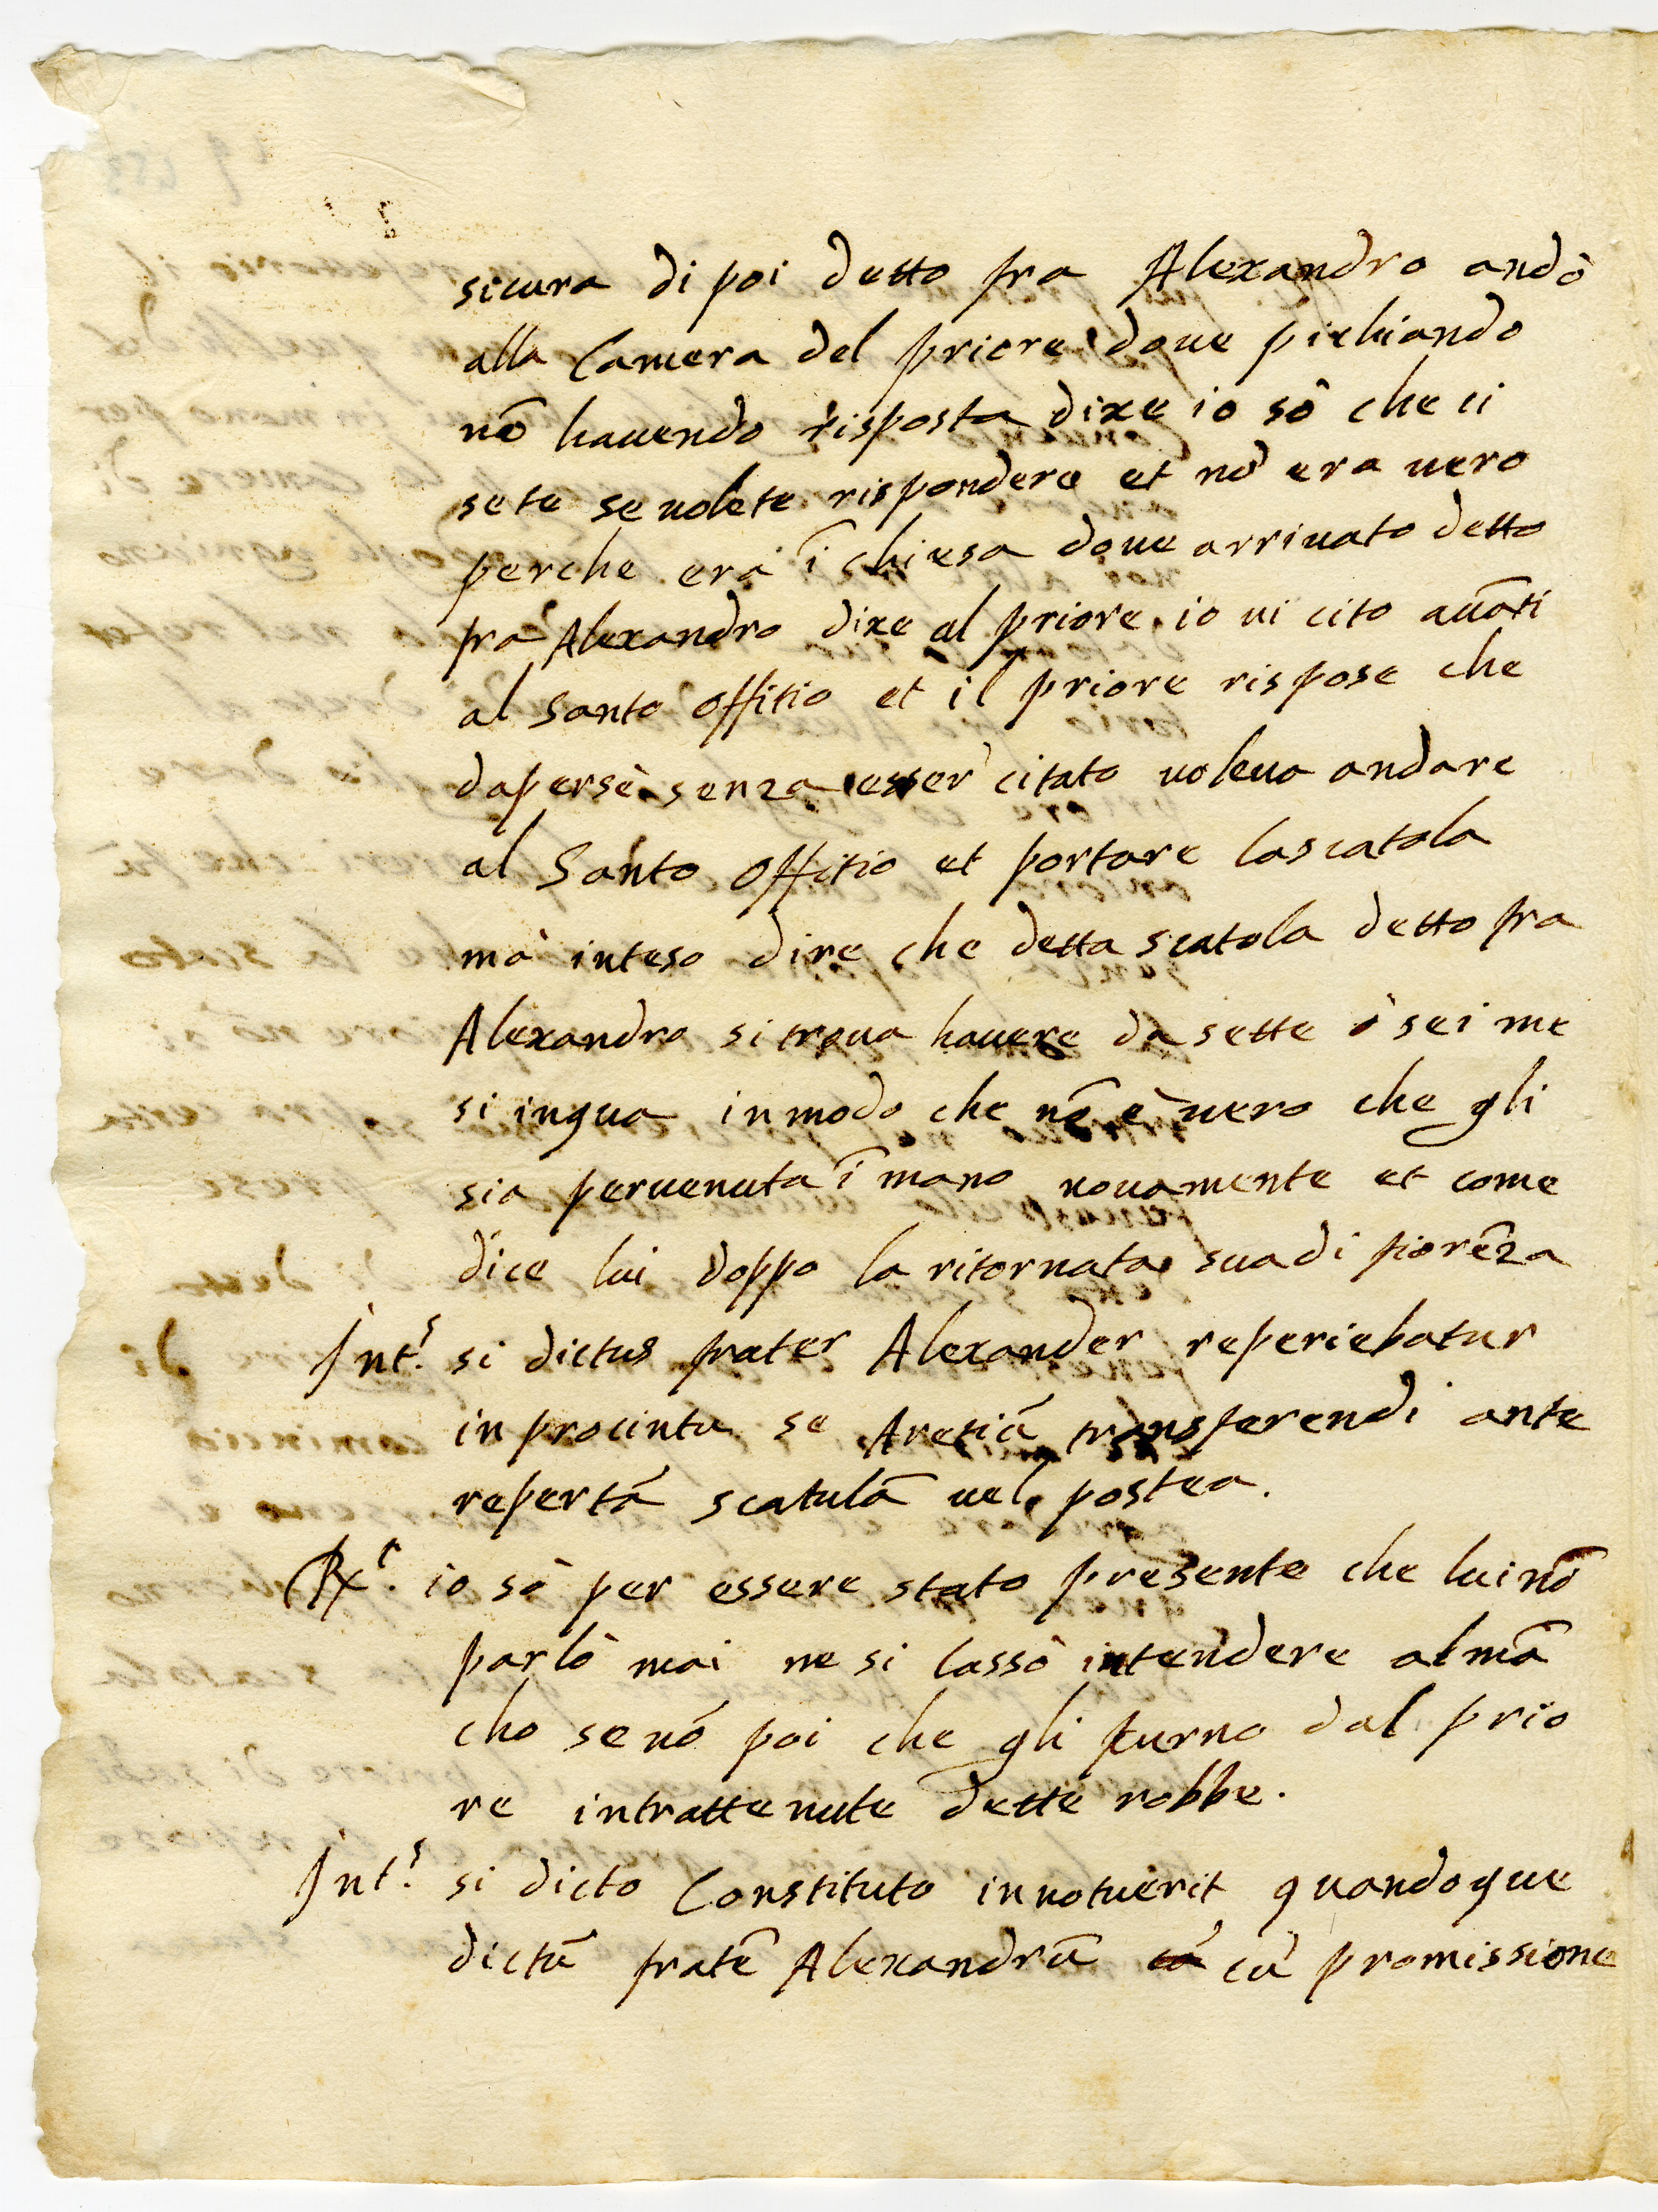 sicura di poi detto fra Alexandro andò
alla Camera del priore doue pichiando
nō hauendo risposta dixe io sò che ci
sete se uolete rispondere et nō era uero
perche era ī chiesa doue arriuato detto
frà Alexandro dixe al priore io ui cito auāti
al Santo offitio et il priore rispose che
dapersè senza esser citato uoleua andare
al Santo offitio et portare la scatola
mà inteso dire che detta scatola detto fra
Alexandro si troua hauere da sette ò sei me
si in qua in modo che nō è uero che gli
sia peruenuta ī mano nouamente et come
dice lui doppo la ritornata sua di fiorēza
Int.s si dictus frater Alexander reperiebatur
in procintu se Aretiū transferendi ante
repertā scatulā uel postea.
Rx.t io sò per essere stato presente che lui nō
parlò mai ne si lassò intendere al mā
cho se nō poi che gli furno dal prio
re intrattenute dette robbe.
Int.s si dicto Constituto innotuerit quandoque
dictū fratē Alexandrū cū promissione